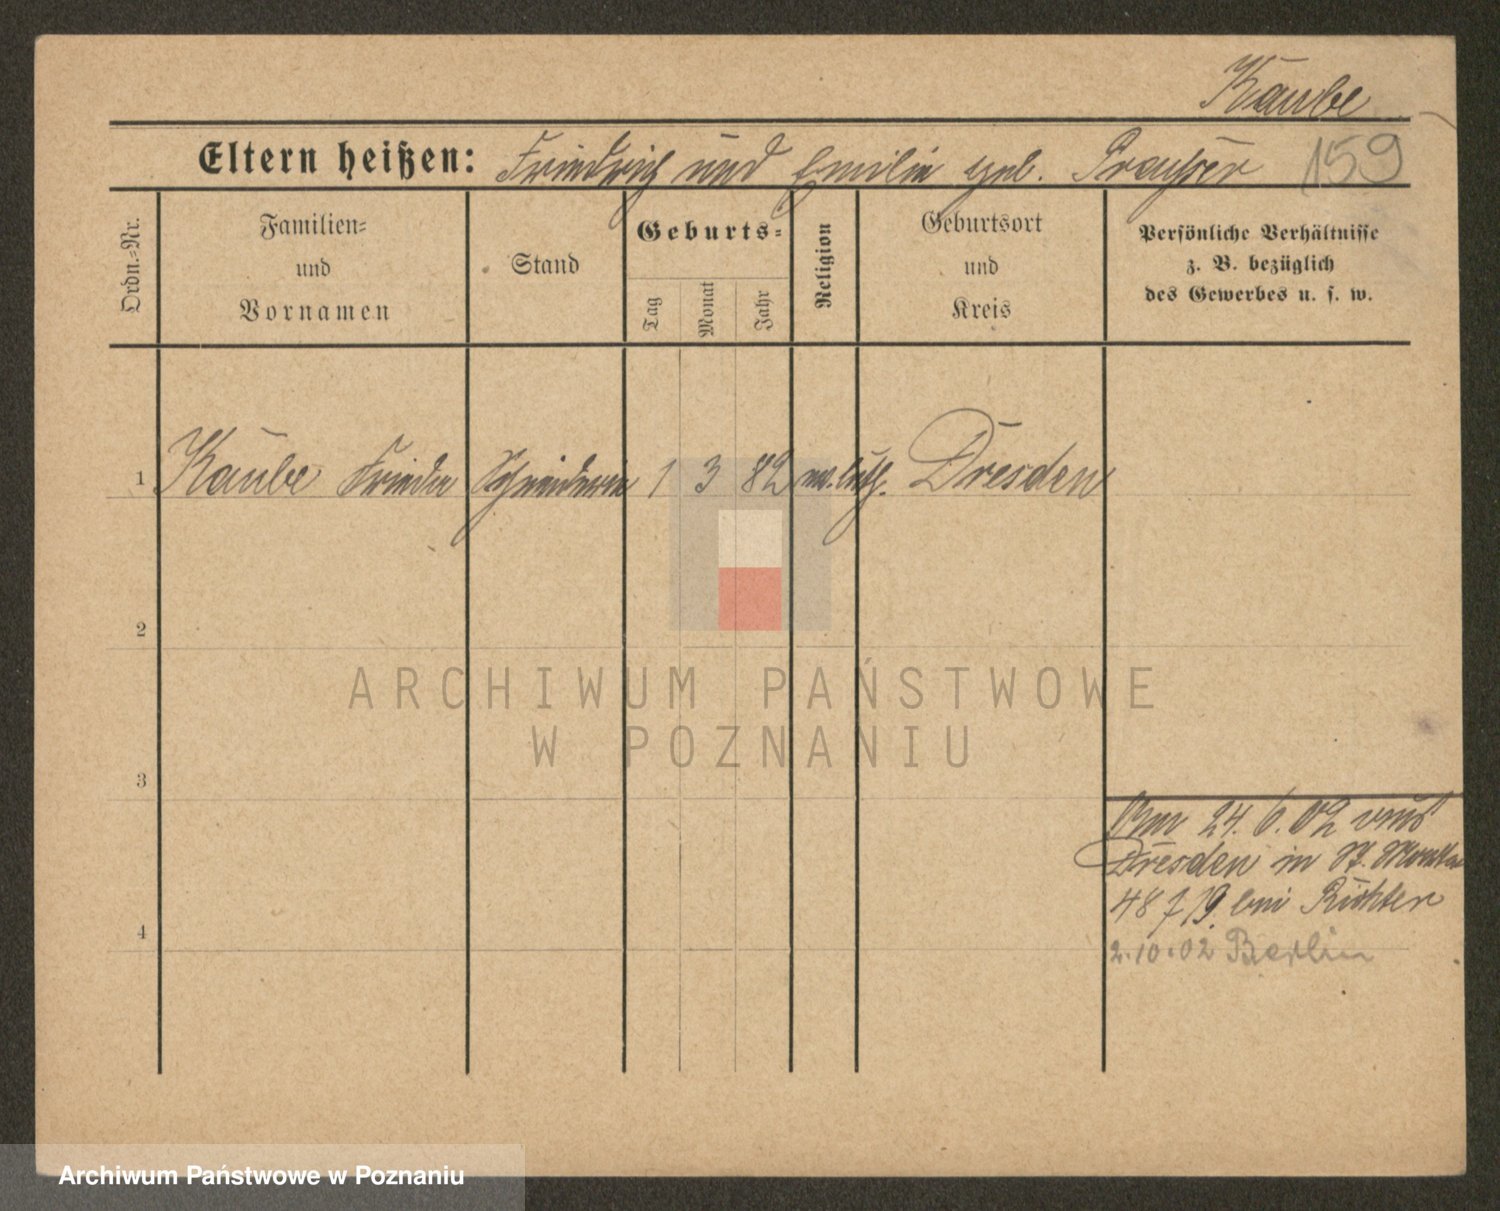 Kaube
Eltern heißen: Friedrich und Emilie geb.
159
Ordn.-Nr.
Familien-
und
Vornamen
Stand
Geburts-
Tag
Monat
Jahr
Religion
Geburtsort
und
Kreis
Persönliche Verhältnisse
z. B. bezüglich
des Gewerbes u. s. w.
1 Kaube Schneiderin 1 3 82 ev. luth. Dresden
2
3
4
Am 24. 6. 02 aus
Dresden in St.
48 bei Richter
2.10.02 Berlin
ARCHIWUM PAŃSTWOWE
W POZNANIU
Archiwum Państwowe w Poznaniu